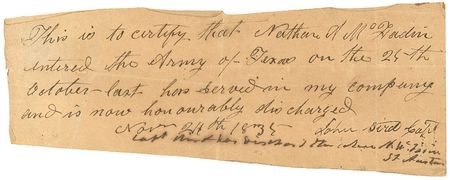 This is to certify that Nathan A McFadin
intered the Army of Texas on the 24th
October last has served in my company
and is now honourably discharged
Nov 24th 1835 John Bird Capt
St Austin